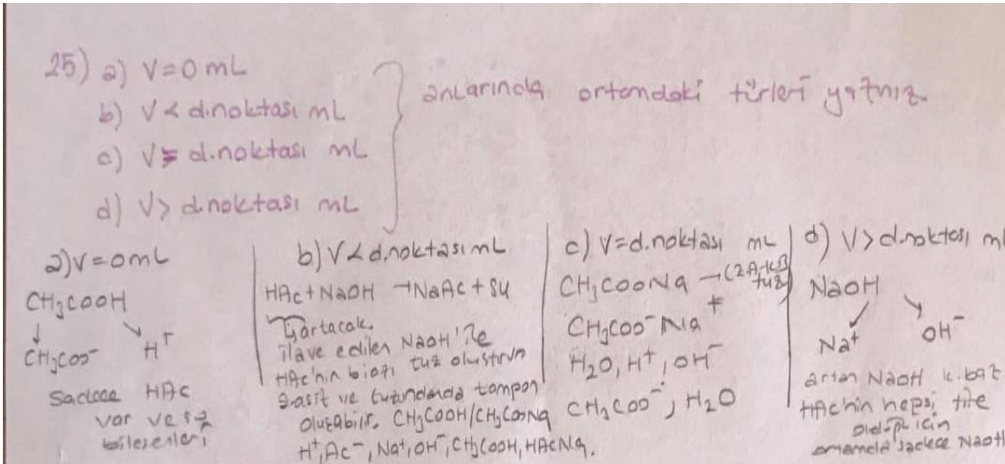 25) a) V=0 mL
b) V< d.noktası mL
c) V= d.noktası mL
d) V> d.noktası mL
anlarında ortamdaki türleri yazınız
a) V=0mL
CH3COOH
CH3COO⁻ H⁺
Sadece HAc
var ve su
bileşenleri
b) V< d.noktası mL
HAc + NaOH → NaAc + su
artacak.
ilave edilen NaOH'le
HAc'nin tuz
asit ve tuzundanda tampon
oluşabilir. CH3COOH/CH3COONa
H⁺, Ac⁻, Na⁺, OH⁻, CH3COOH, HAcNa.
c) V=d.noktası mL
CH3COONa → tuz
CH3COO⁻ Na⁺
H2O, H⁺, OH⁻
CH3COO⁻, H2O
d) V> d.noktası m
NaOH
Na⁺ OH⁻
artan NaOH k.baz
HAc'nin hepsi titre
olduğu için
ortamda sadece NaOH